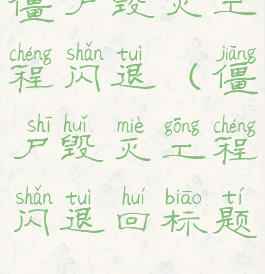 僵尸毁灭工
chéng shǎn tuì jiāng
程闪退（僵
shī huǐ miè gōng chéng
尸毁灭工程
shǎn tuì huí biāo tí
闪退回标题